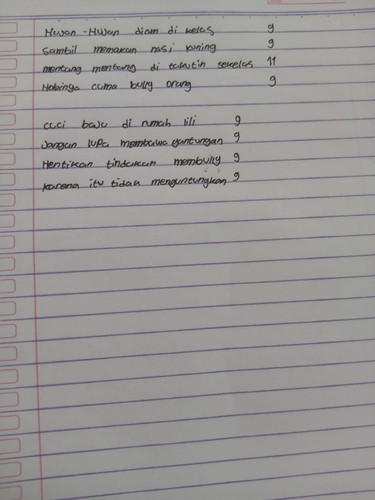 Hujan-Hujan diam di kelas 9
Sambil memakan nasi kuning 9
mentang mentang di takutin sekelas 11
Hobinya cuma bully orang 9
cuci baju di rumah lili 9
Jangan lupa membawa gantungan 9
Hentikan tindakan membully 9
karena itu tidak menguntungkan 9